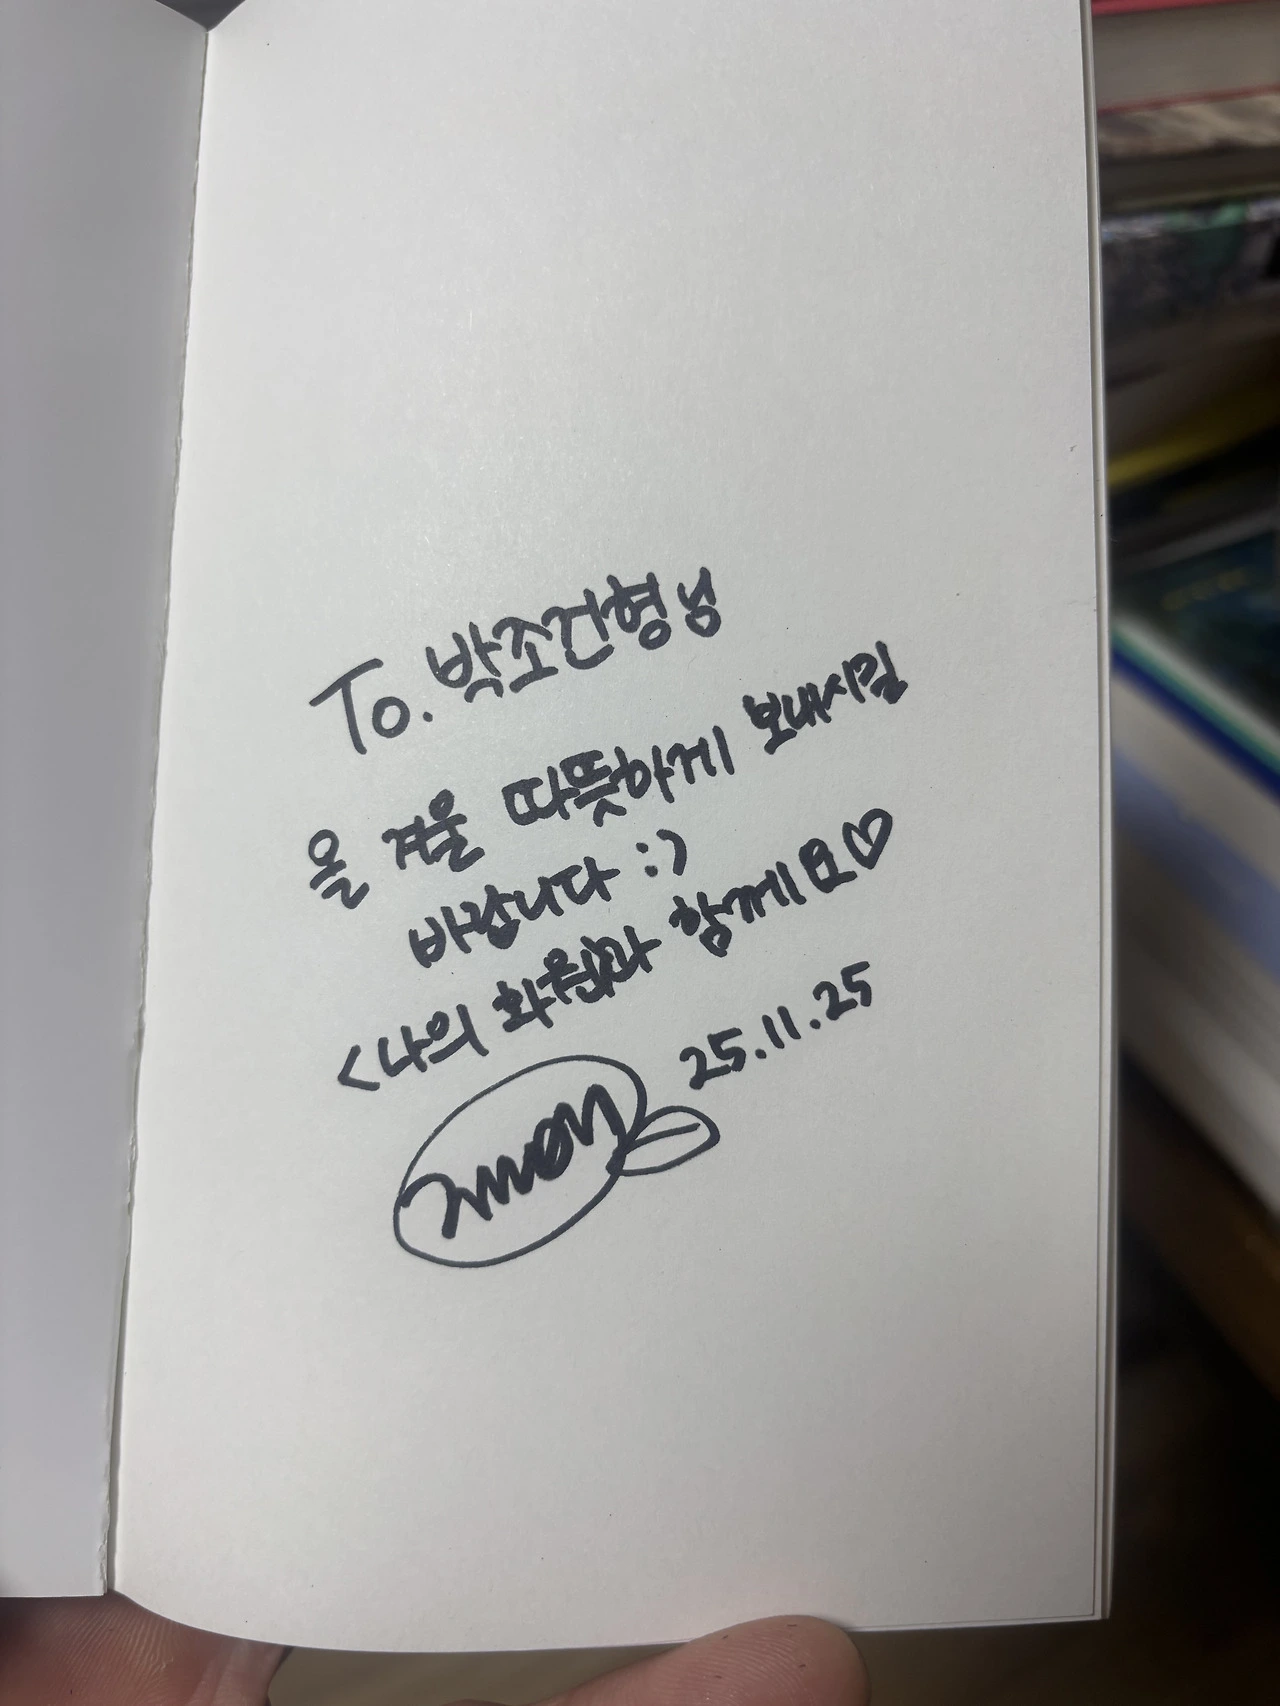 To. 박조건형님
올 겨울 따뜻하게 보내시길
바랍니다 :)
<나의 화원과 함께요♡
25.11.25